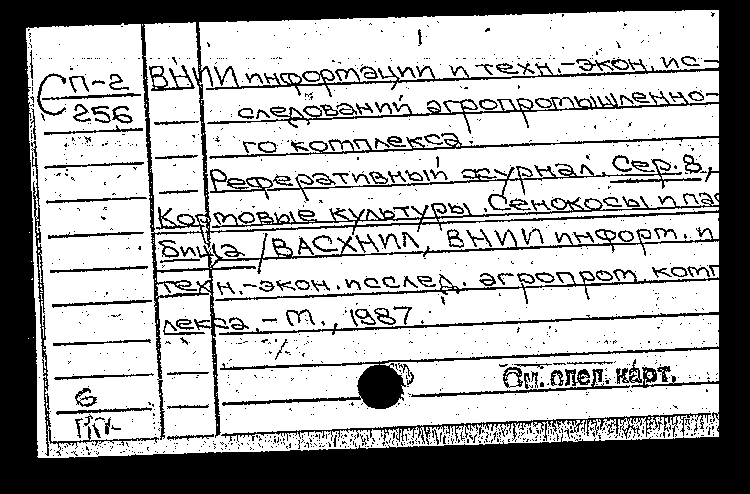 1
СП-2 ВНИИ информации и техн.-экон. ис-
256 следований агропромышленно-
го комплекса.
Реферативный журнал. Сер. 8,
Кормовые культуры. Сенокосы и пас
бища / ВАСХНИЛ, ВНИИ информ. и
техн.-экон. исслед. агропром. комп
лекса. - М., 1987.
См. след. карт.
6